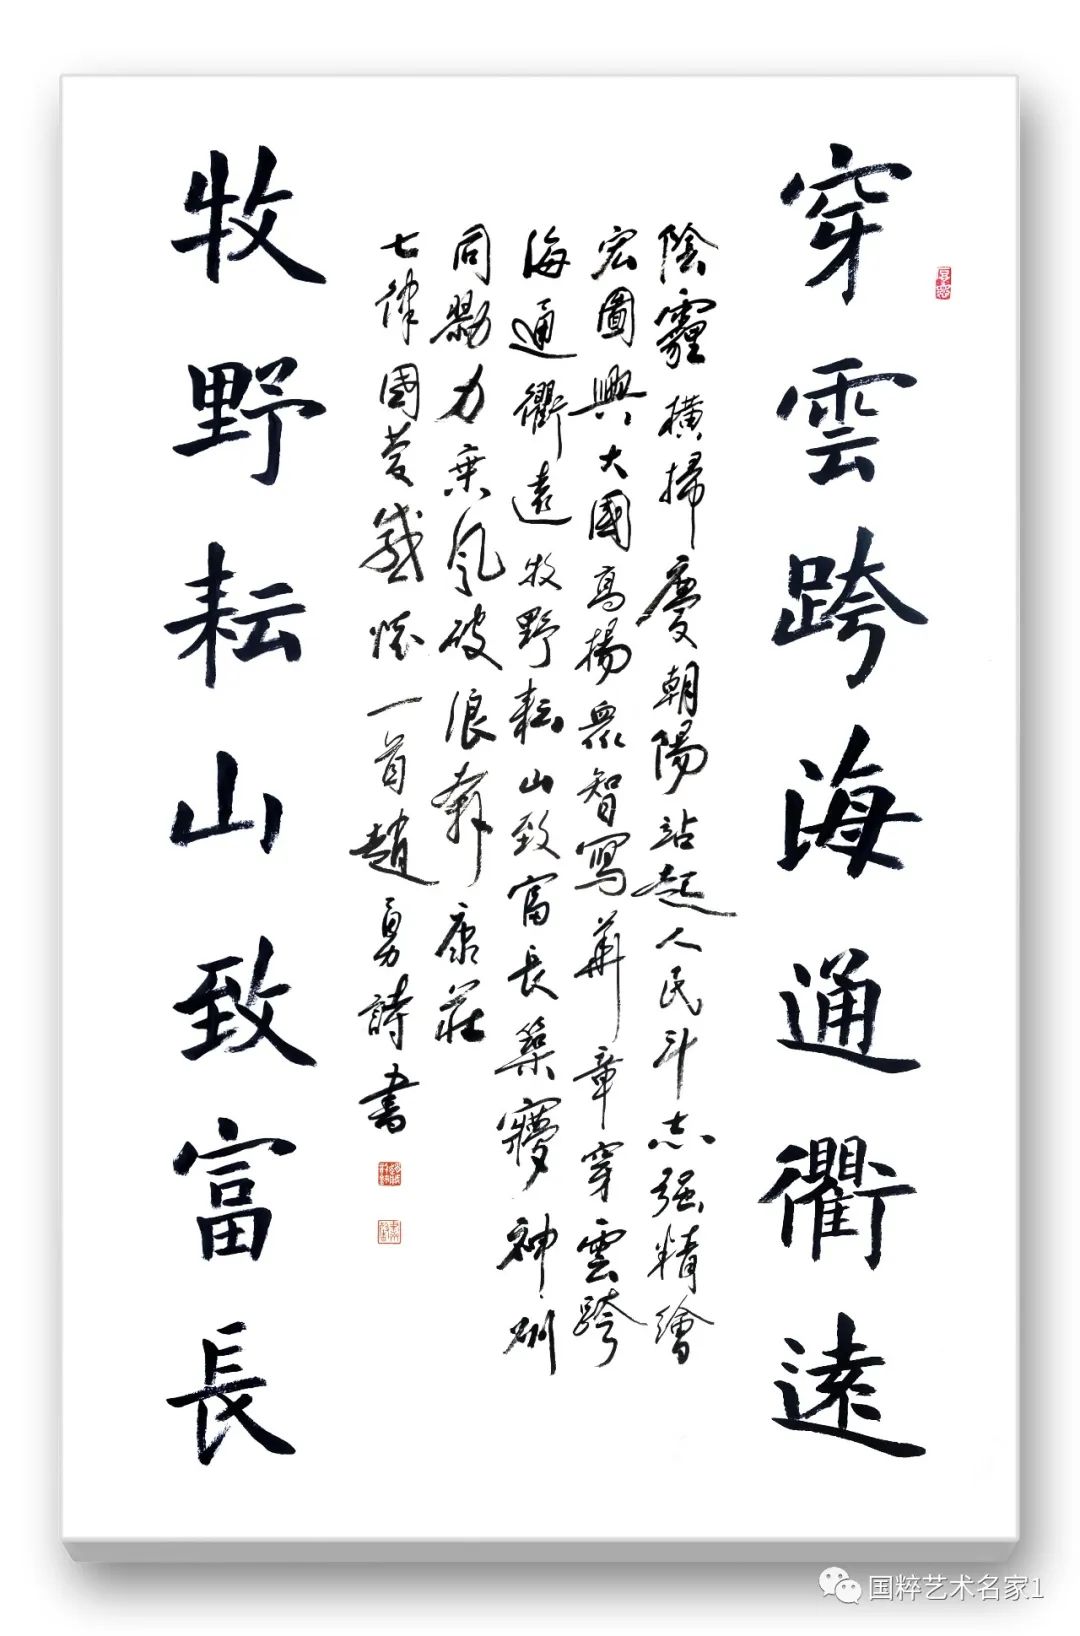 穿雲跨海通衢遠
陰霾橫掃慶朝陽站起人民斗志强精繪
宏圖興大國高揚眾智寫華章穿雲跨
海通衢遠牧野耘山致富長築夢神州
同勠力乘風破浪奔康莊
七律國慶感懷一首趙勇詩書
牧野耘山致富長
国粹艺术名家1